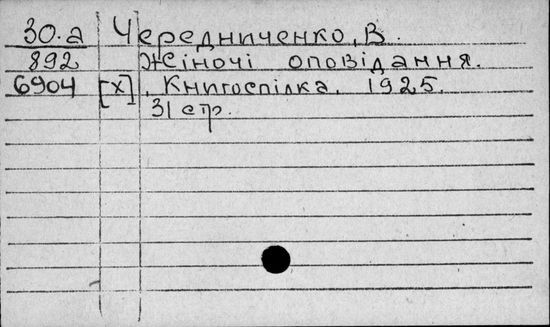 30.а Чередниченко, В.
892 Жіночі оповідання.
6904 [Х], Книгоспілка, 1925.
31 стр.